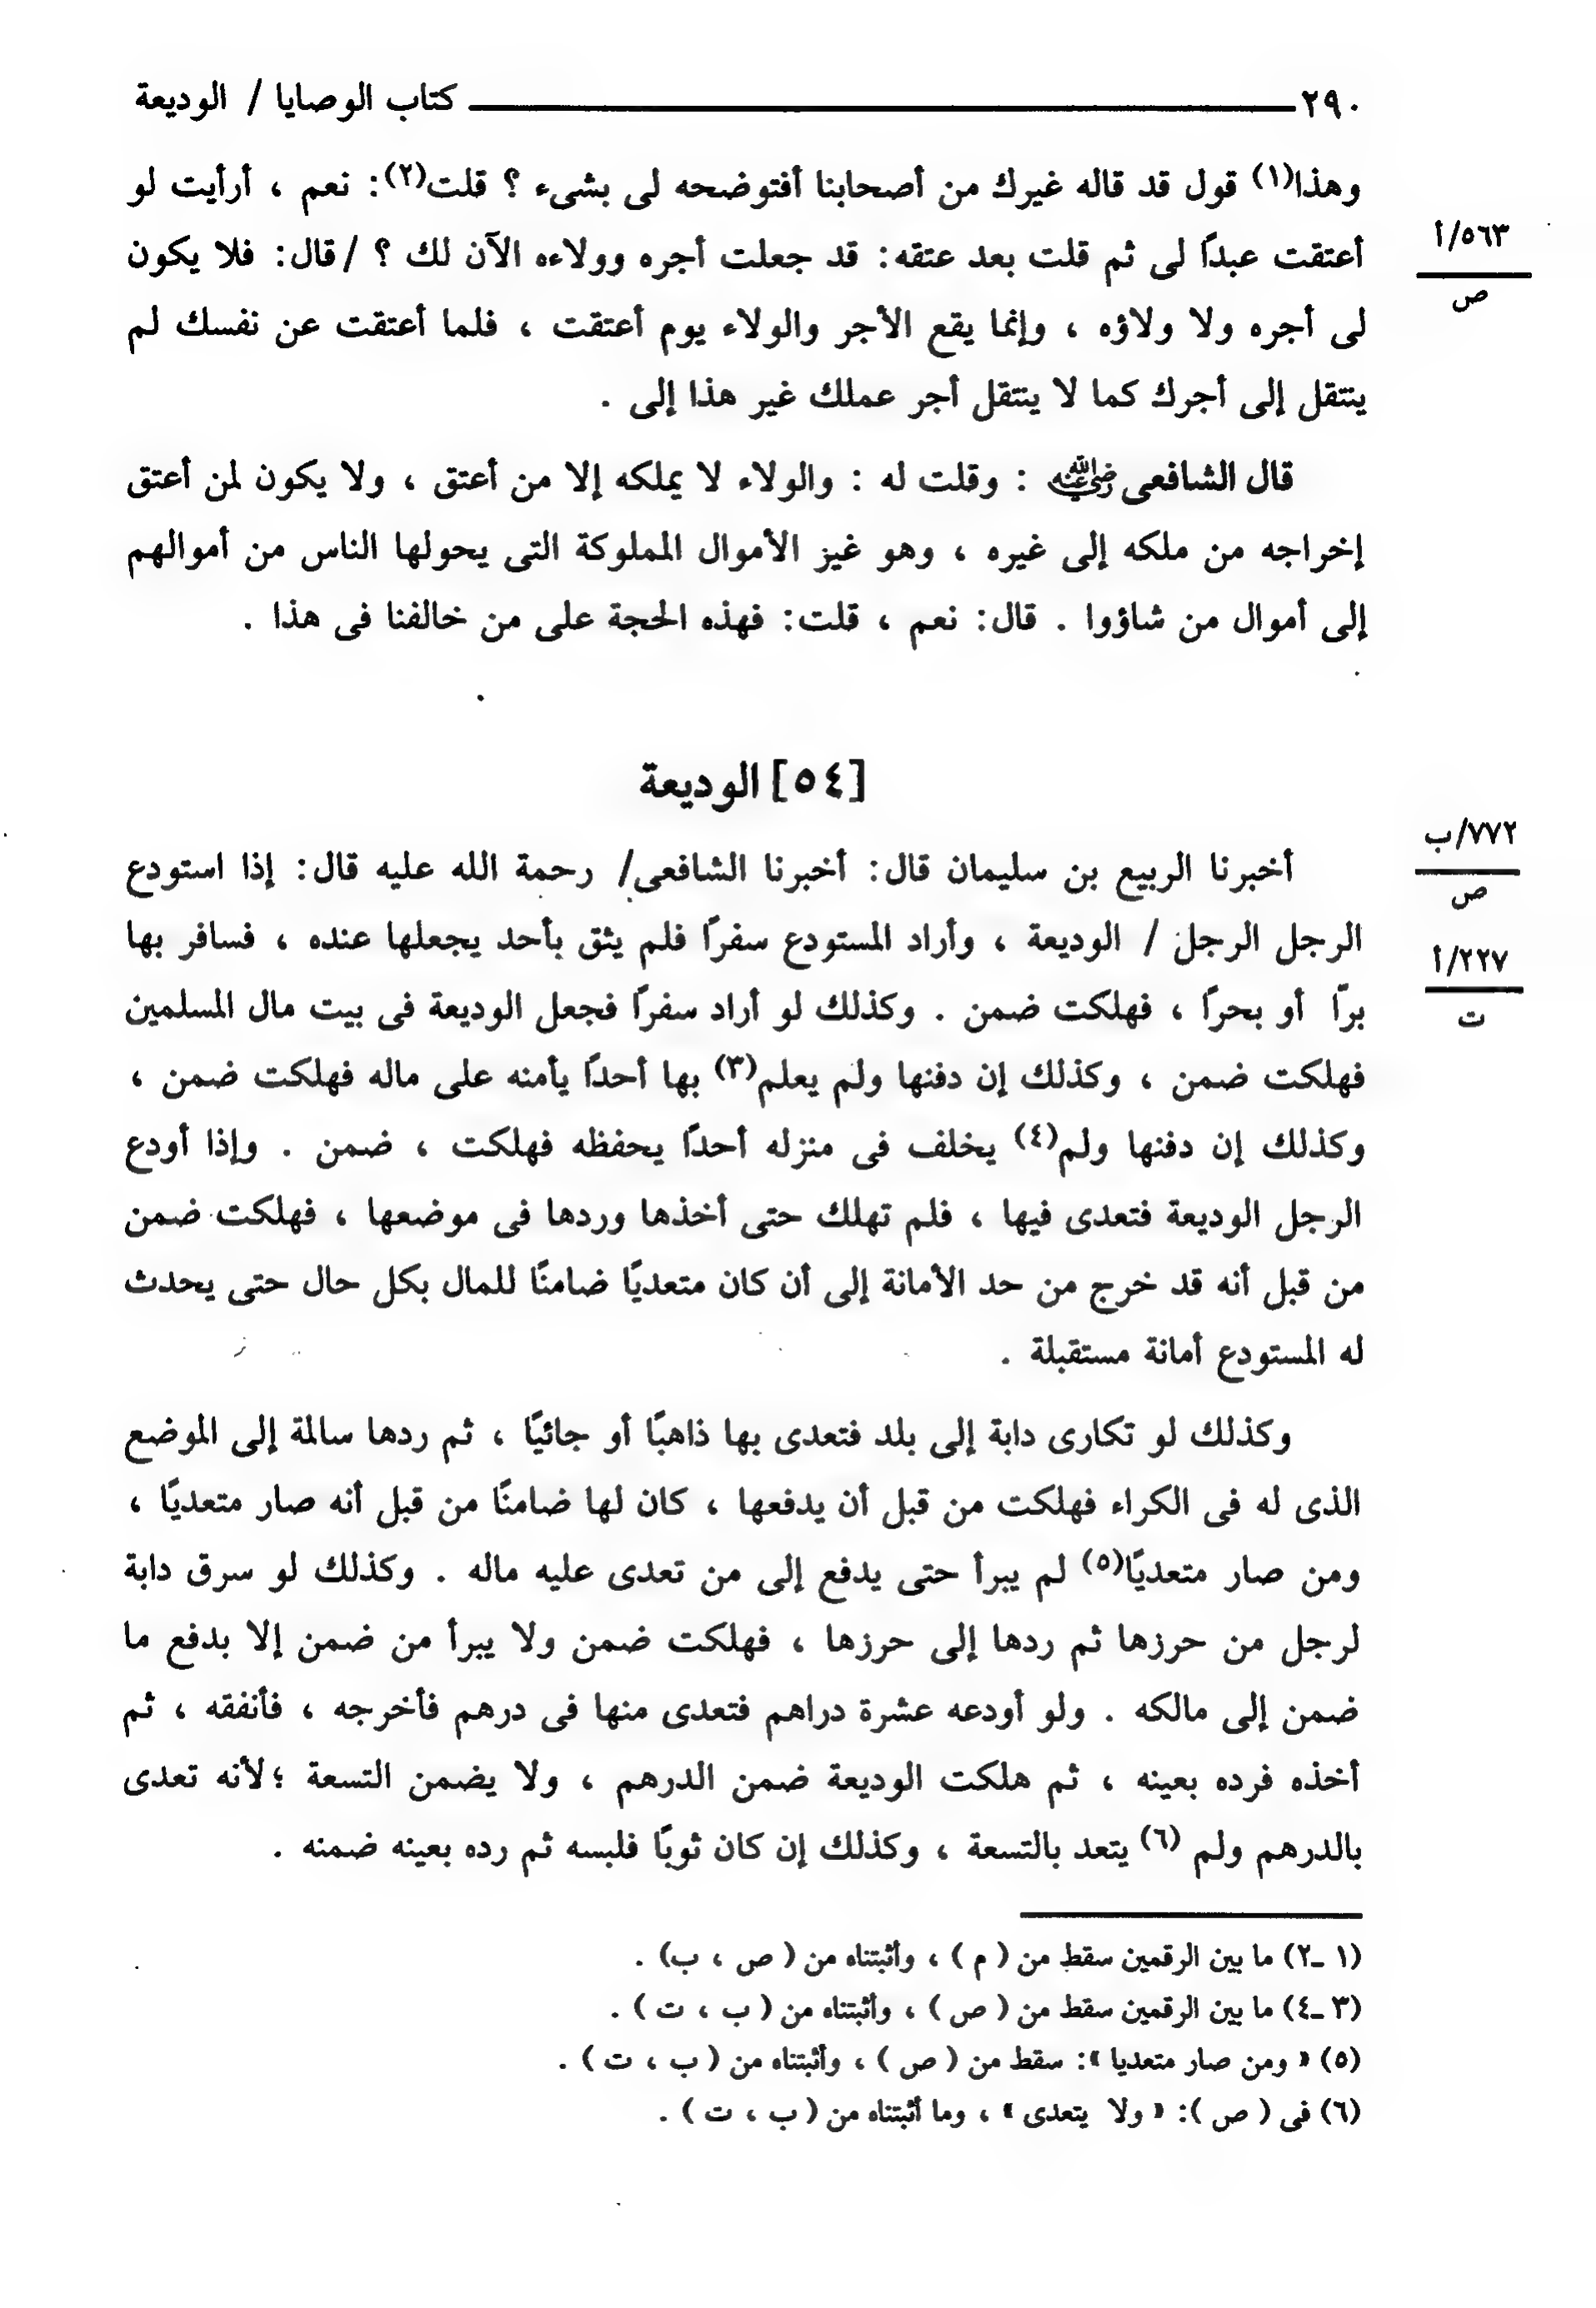 ٢٩٠ كتاب الوصايا / الوديعة
وهذا(١) قول قد قاله غيرك من أصحابنا أفتوضحه لى بشىء ؟ قلت(٢): نعم ، أرأيت لو
أعتقت عبدًا لى ثم قلت بعد عتقه: قد جعلت أجره وولاءه الآن لك ؟ / قال: فلا يكون
٥٦٣/أ
ص
لى أجره ولا ولاؤه ، وإنما يقع الأجر والولاء يوم أعتقت ، فلما أعتقت عن نفسك لم
ينتقل إلى أجرك كما لا ينتقل أجر عملك غير هذا إلى .
قال الشافعى رضي الله عنه : وقلت له : والولاء لا يملكه إلا من أعتق ، ولا يكون لمن أعتق
إخراجه من ملكه إلى غيره ، وهو غيز الأموال المملوكة التى يحولها الناس من أموالهم
إلى أموال من شاؤوا . قال: نعم ، قلت: فهذه الحجة على من خالفنا فى هذا .
[٥٤] الوديعة
أخبرنا الربيع بن سليمان قال: أخبرنا الشافعى/ رحمة الله عليه قال: إذا استودع
٧٧٢/ب
ص
الرجل الرجل / الوديعة ، وأراد المستودع سفرًا فلم يثق بأحد يجعلها عنده ، فسافر بها
٢٢٧/أ
ت
برًا أو بحرًا ، فهلكت ضمن . وكذلك لو أراد سفرًا فجعل الوديعة فى بيت مال المسلمين
فهلكت ضمن ، وكذلك إن دفنها ولم يعلم(٣) بها أحدًا يأمنه على ماله فهلكت ضمن ،
وكذلك إن دفنها ولم(٤) يخلف فى منزله أحدًا يحفظه فهلكت ، ضمن . وإذا أودع
الرجل الوديعة فتعدى فيها ، فلم تهلك حتى أخذها وردها فى موضعها ، فهلكت ضمن
من قبل أنه قد خرج من حد الأمانة إلى أن كان متعديًا ضامنًا للمال بكل حال حتى يحدث
له المستودع أمانة مستقبلة .
وكذلك لو تكارى دابة إلى بلد فتعدى بها ذاهبًا أو جائيًا ، ثم ردها سالمة إلى الموضع
الذى له فى الكراء فهلكت من قبل أن يدفعها ، كان لها ضامنًا من قبل أنه صار متعديًا ،
ومن صار متعديًا(٥) لم يبرأ حتى يدفع إلى من تعدى عليه ماله . وكذلك لو سرق دابة
لرجل من حرزها ثم ردها إلى حرزها ، فهلكت ضمن ولا يبرأ من ضمن إلا بدفع ما
ضمن إلى مالكه . ولو أودعه عشرة دراهم فتعدى منها فى درهم فأخرجه ، فأنفقه ، ثم
أخذه فرده بعينه ، ثم هلكت الوديعة ضمن الدرهم ، ولا يضمن التسعة ؛ لأنه تعدى
بالدرهم ولم (٦) يتعد بالتسعة ، وكذلك إن كان ثوبًا فلبسه ثم رده بعينه ضمنه .
(١ ـ٢) ما بين الرقمين سقط من ( م ) ، وأثبتناه من ( ص ، ب) .
(٣ ـ٤) ما بين الرقمين سقط من ( ص ) ، وأثبتناه من ( ب ، ت ) .
(٥) « ومن صار متعديا »: سقط من ( ص ) ، وأثبتناه من ( ب ، ت ) .
(٦) فى ( ص ): « ولا يتعدى » ، وما أثبتناه من ( ب ، ت ) .